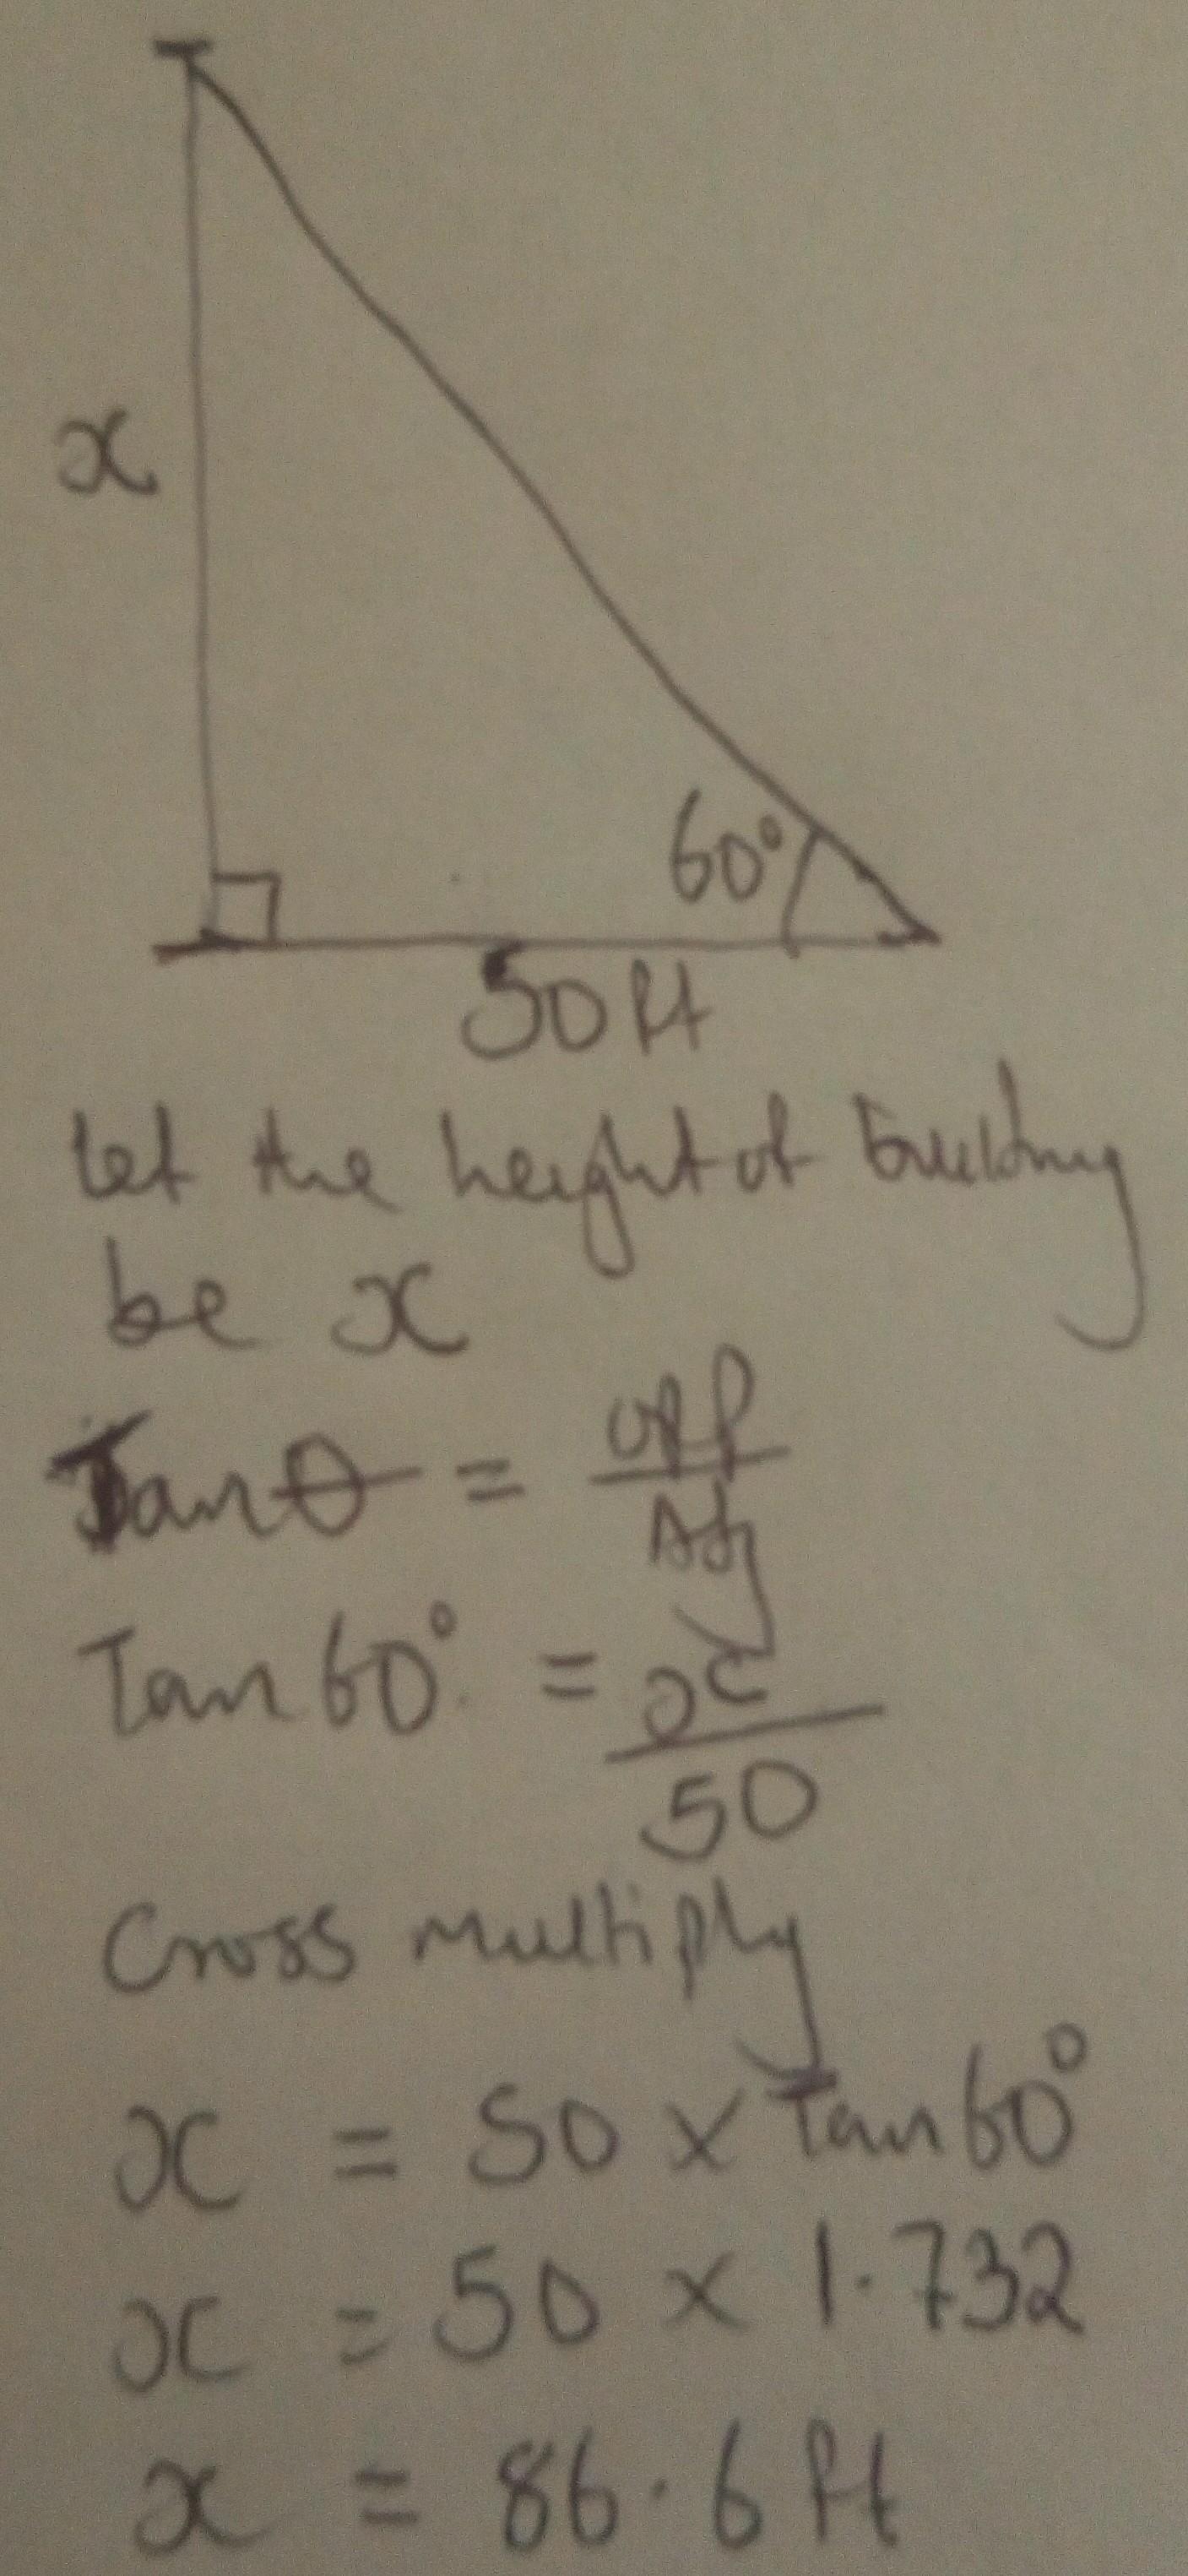 x
60°
50ft
let the height of building
be x
Tanθ = opp
Adj
Tan60° = x
50
Cross multiply
x = 50 × Tan60°
x = 50 × 1.732
x = 86.6ft